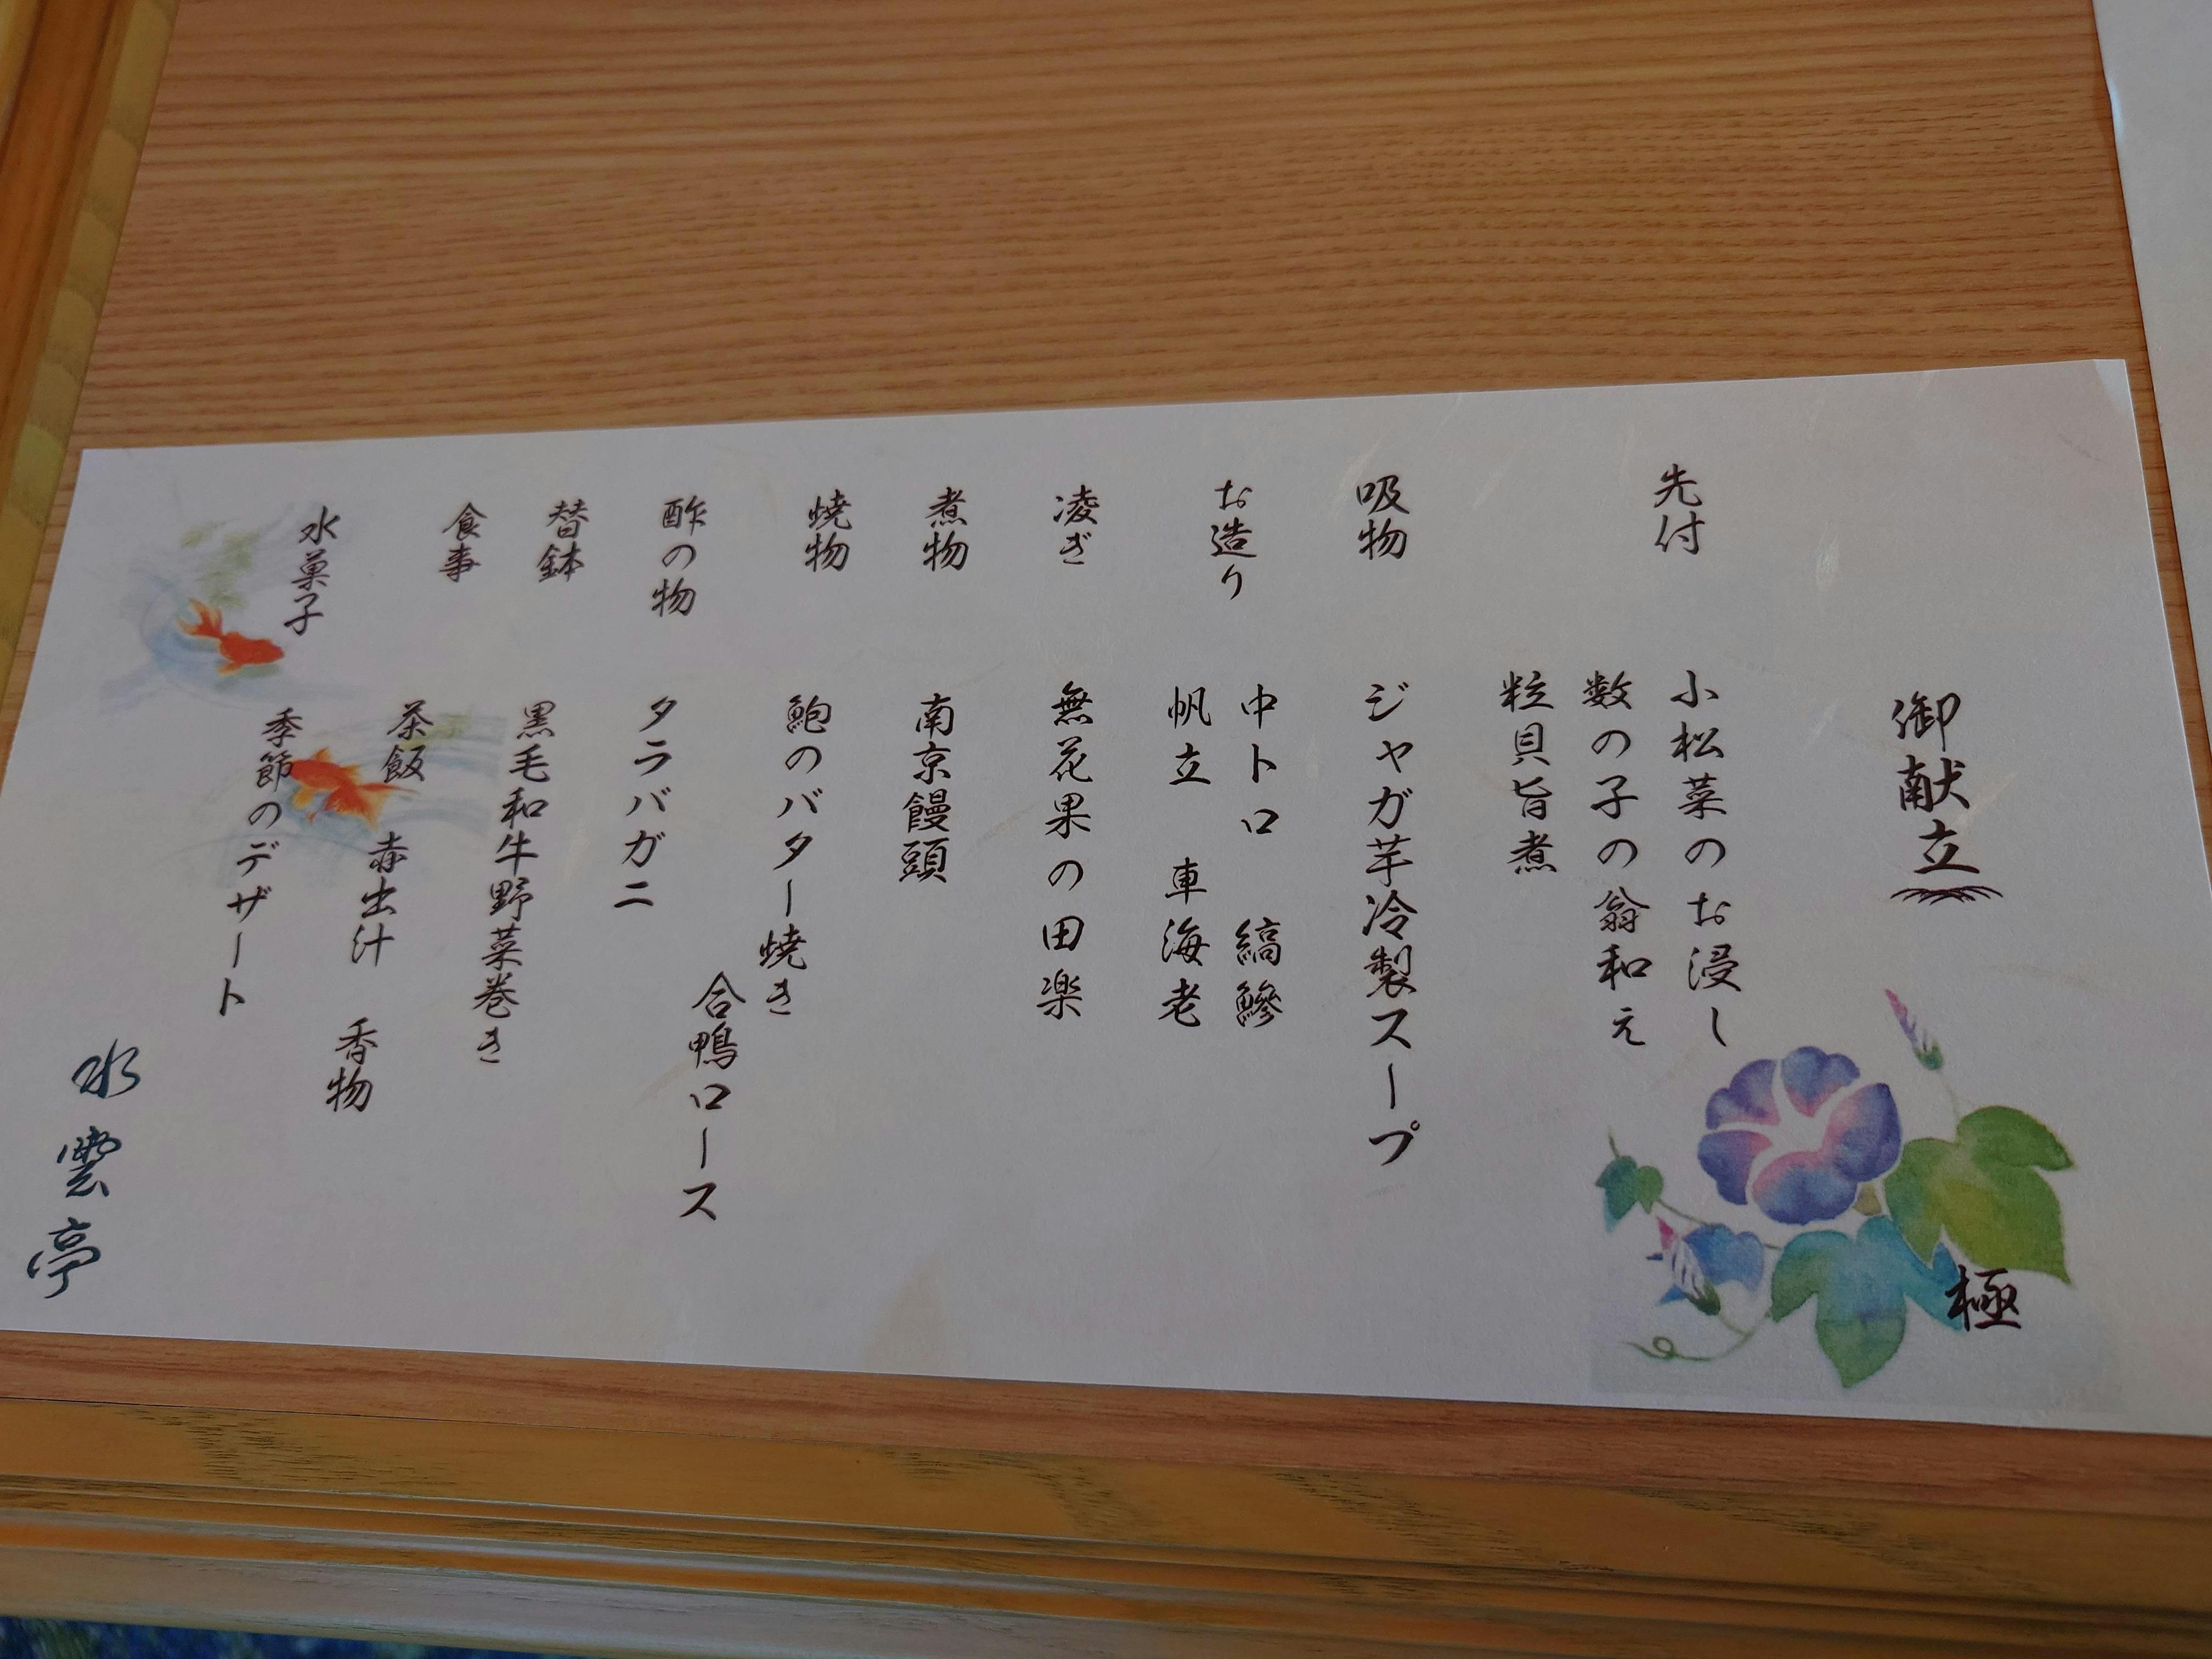 御献立
極
先付
小松菜のお浸し
数の子の翁和え
粒貝旨煮
吸物
ジャガ芋冷製スープ
お造り
中トロ 縞鰺
帆立 車海老
凌ぎ
無花果の田楽
煮物
南京饅頭
焼物
鮑のバター焼き
合鴨ロース
酢の物
タラバガニ
替鉢
黒毛和牛野菜巻き
食事
茶飯 赤出汁 香物
水菓子
季節のデザート
水雲亭